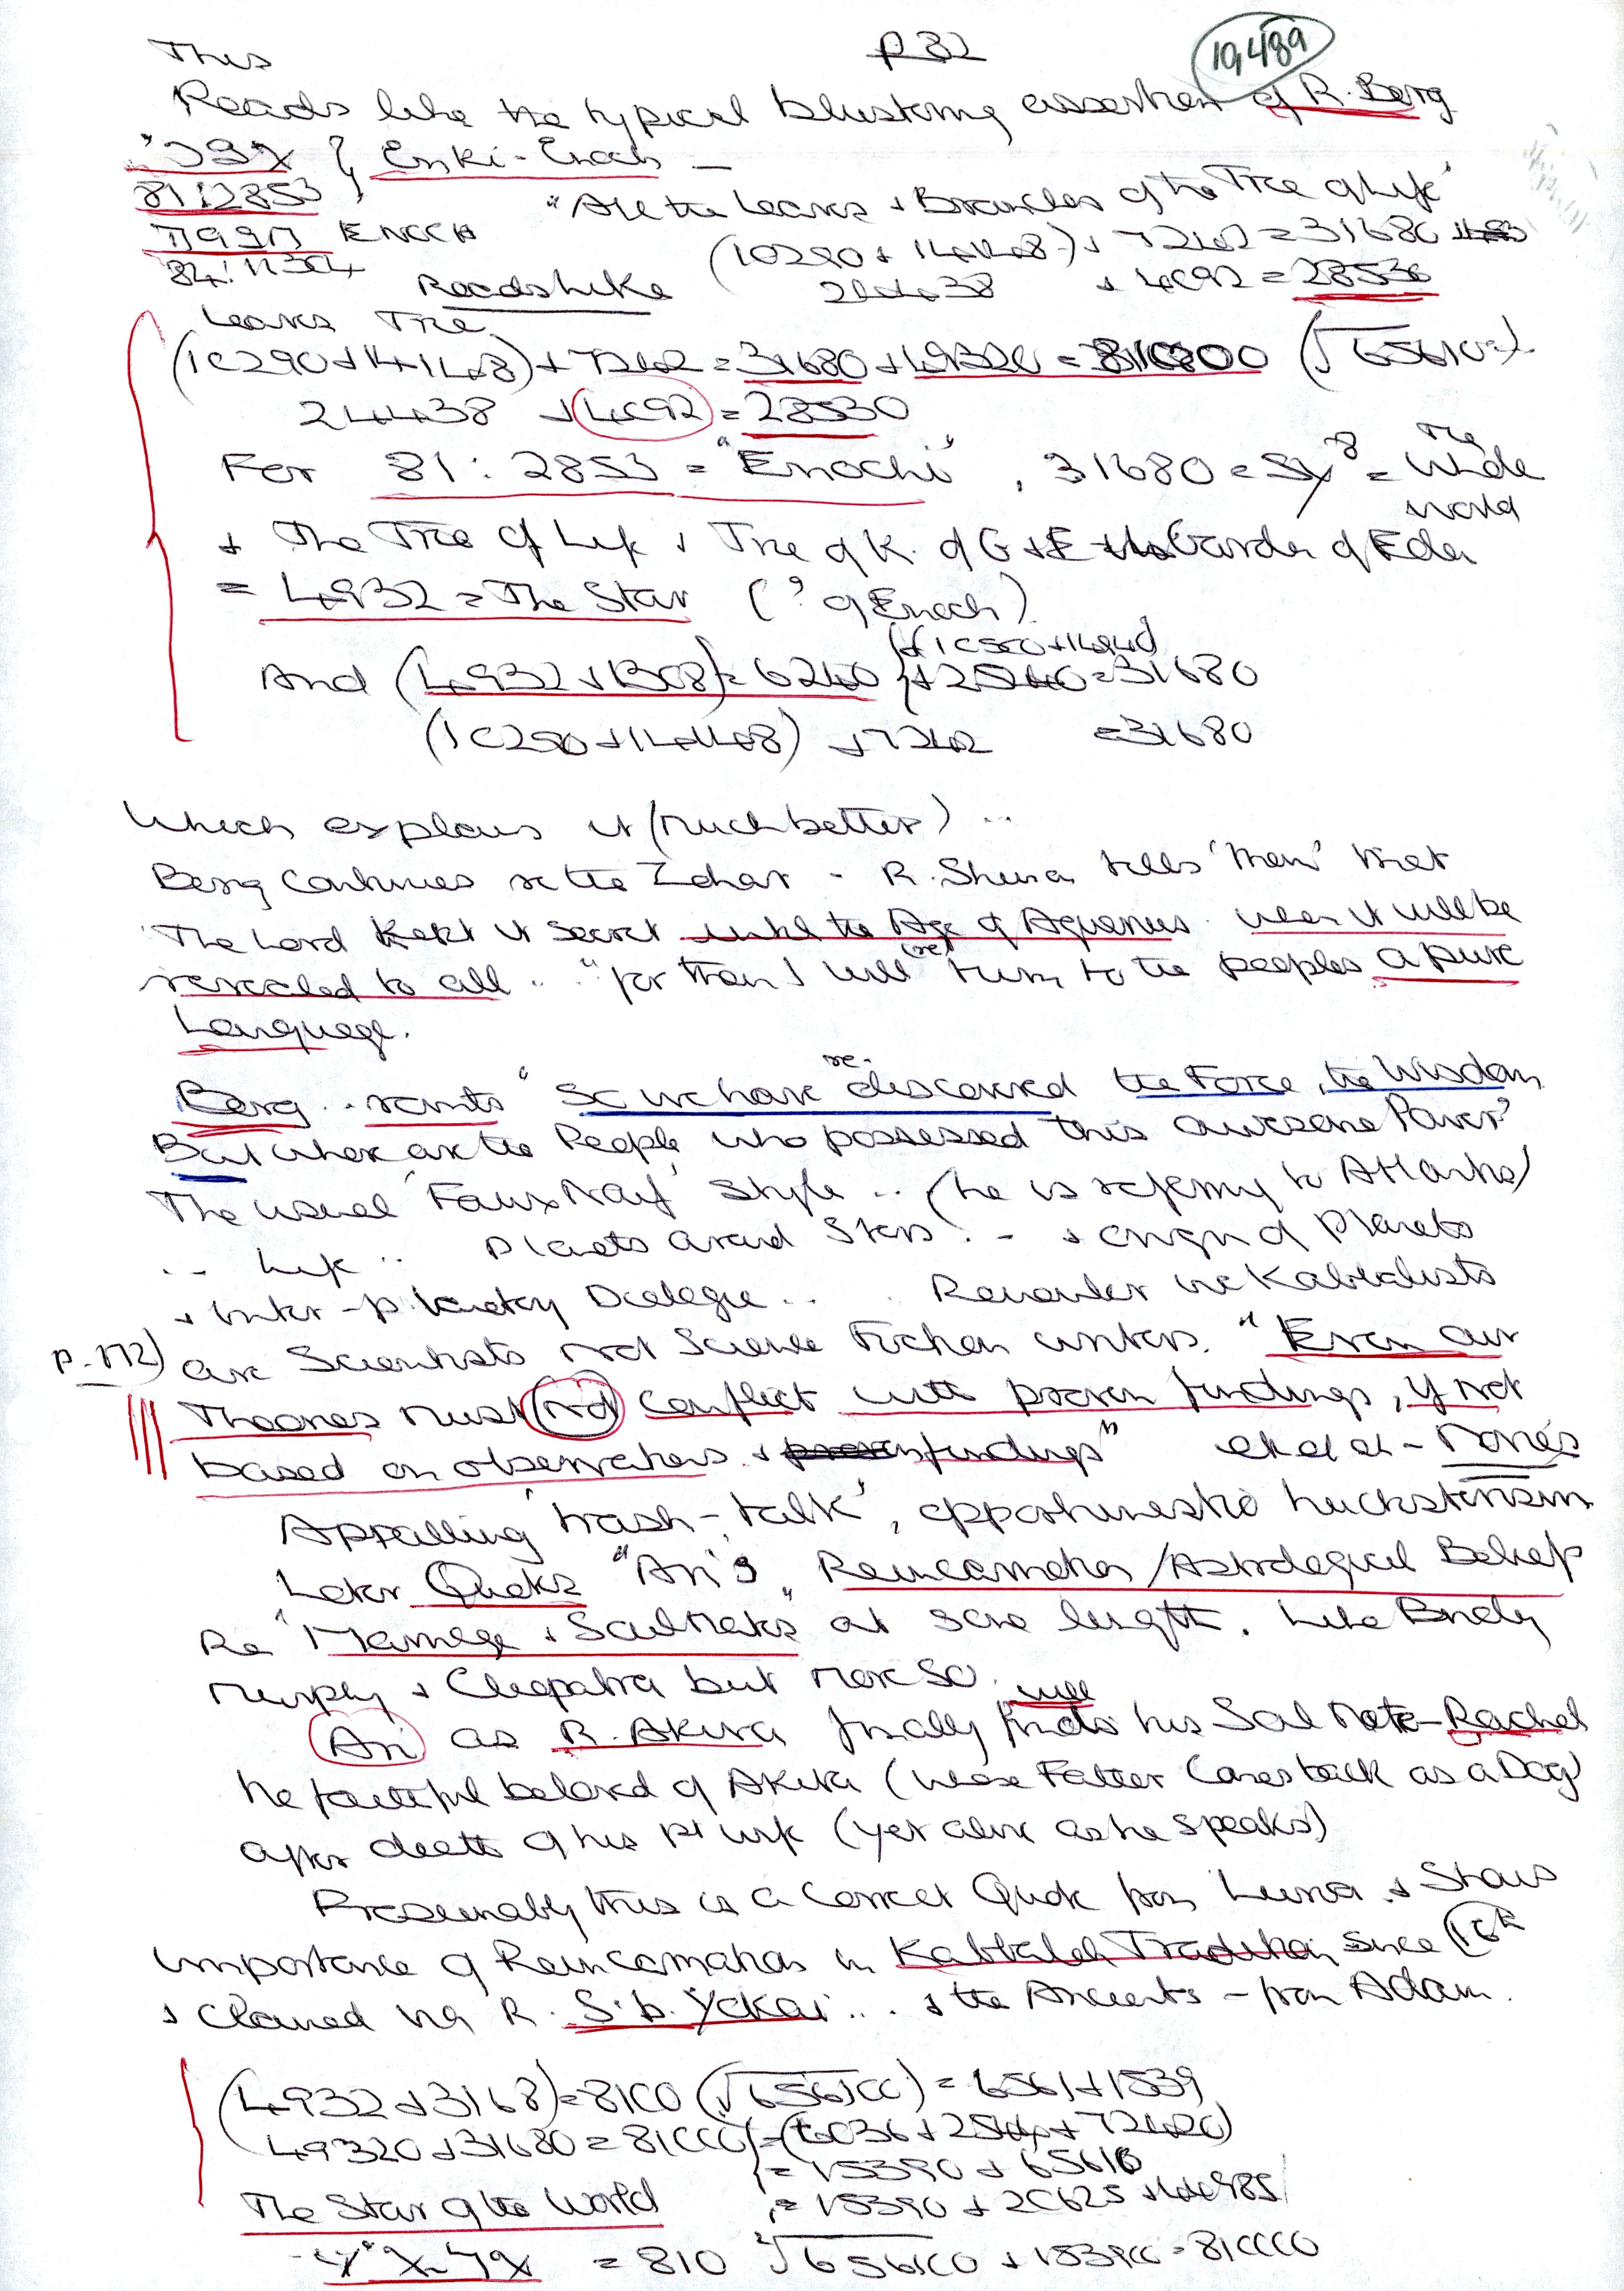 P 32
10,489
This
Reads like the typical blustering assertion of R. Berg
& Enki-Enoch —
81:2853
"All the Leaves + Branches of the Tree of Life"
ENOCH
(10290 + 14148) + 7242 = 31680
24438 + 4092 = 28530
Reads like
Leaves Tree
(10290 + 14148) + 7242 = 31680 + 49320 = 81000
24438 + 4092 = 28530
For 81:2853 = "Enochi", 31680 = = The Wide World
+ The Tree of Life + Tree of K. of G + E Garden of Eden
= 4932 = The Star (? of Enoch)
(+10500 + 14940)
And (4932 + 1308) = 6240 + 25440 = 31680
(10290 + 14148) + 7242 = 31680
Which explains it (much better) ..
Berg continues the Zohar - R. tells 'them' that
The Lord kept it secret until the Age of Aquarius when it will be
revealed to all .. "for then I will (re) turn to the peoples a pure
Language.
Berg .. rants "So we have re-discovered the Force, the Wisdom
But where are the People who possessed this awesome Power?
The usual 'Faux Naif' style .. (he is referring to Atlantis)
.. Life .. Planets around Stars .. + origin of Planets
+ inter-planetary Dialogue .. Remember we Kabbalists
p. 172) are Scientists not Science Fiction writers. "Even our
Theories must not conflict with proven findings, if not
based on observations + findings"
Appalling 'trash-talk', opportunistic hucksterism
Later Quotes "Ari's" Reincarnation/Astrological Beliefs
Re "Marriage + Soulmates" at some length. Like Bridey
Murphy + Cleopatra but more so.
Ari as R. Akiva finally will finds his Soul Mate - Rachel
the faithful beloved of Akiva (whose Father Comes back as a Dog)
after death of his 1st wife (yet alive as he speaks)
Presumably this is a correct Quote from Luria + Shows
importance of Reincarnation in Kabbalah Tradition since
+ Claimed via R. S. b. Yokai ... + the Ancients - from Adam.
(4932 + 3168) = 8100 (√656100) = 6561 + 1539
49320 + 31680 = 81000 = (6036 + 2544 + 72420)
= 15390 + 65610
The Star of the World = 15390 + 20625 + 44985
= 810 √656100 + 153900 = 810000